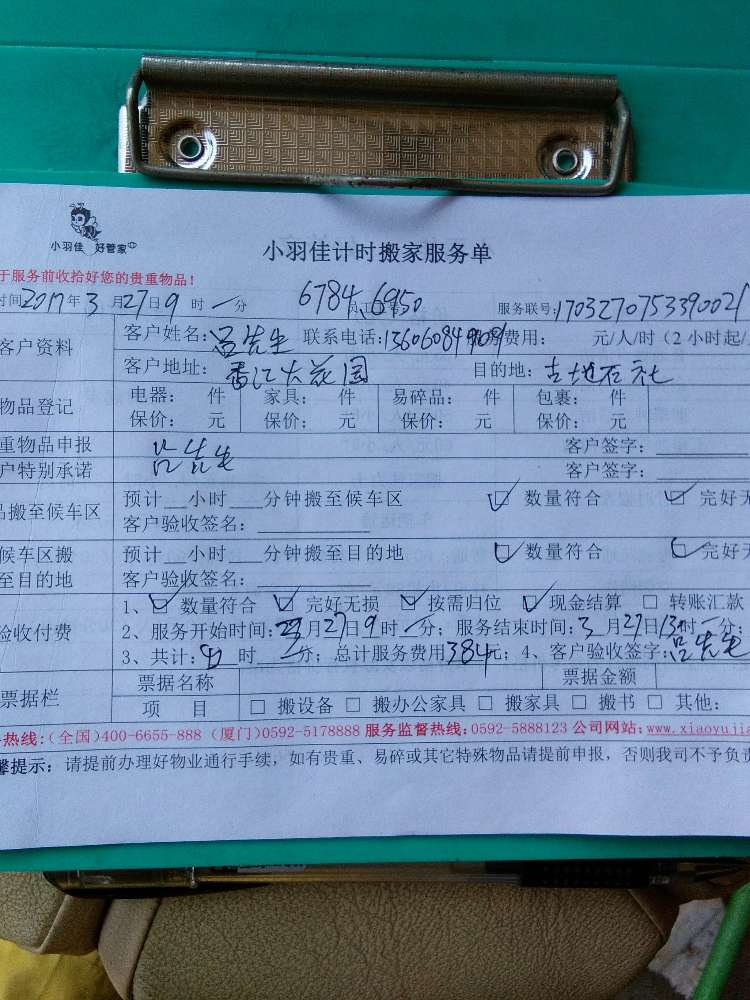 小羽佳 好管家
小羽佳计时搬家服务单
于服务前收拾好您的贵重物品！
时间2017年3月27日9时一分 6784、6950 服务联号：1703270753390021
客户资料 客户姓名：吕先生 联系电话： 费用： 元/人/时（2小时起/
客户地址：香江大花园 目的地：古地石社
物品登记 电器： 件 家具： 件 易碎品： 件 包裹： 件
保价： 元 保价： 元 保价： 元 保价： 元
重物品申报 客户签字：
户特别承诺 吕先生 客户签字：
品搬至候车区 预计__小时___分钟搬至候车区 ☑ 数量符合 ☑ 完好无
客户验收签名：
候车区搬 预计__小时___分钟搬至目的地 ☑ 数量符合 ☑ 完好无
至目的地 客户验收签名：
验收付费 1、☑ 数量符合 ☑ 完好无损 ☑ 按需归位 ☑ 现金结算 □ 转账汇款
2、服务开始时间：3月27日9时一分；服务结束时间：3月27日13时一分；
3、共计： 时 分；总计服务费用384元；4、客户验收签字：吕先生
票据栏 票据名称 票据金额
项 目 □ 搬设备 □ 搬办公家具 □ 搬家具 □ 搬书 □ 其他：
热线：（全国）400-6655-888（厦门）0592-5178888 服务监督热线：0592-5888123 公司网站：www.xiaoyujia
馨提示：请提前办理好物业通行手续，如有贵重、易碎或其它特殊物品请提前申报，否则我司不予负责